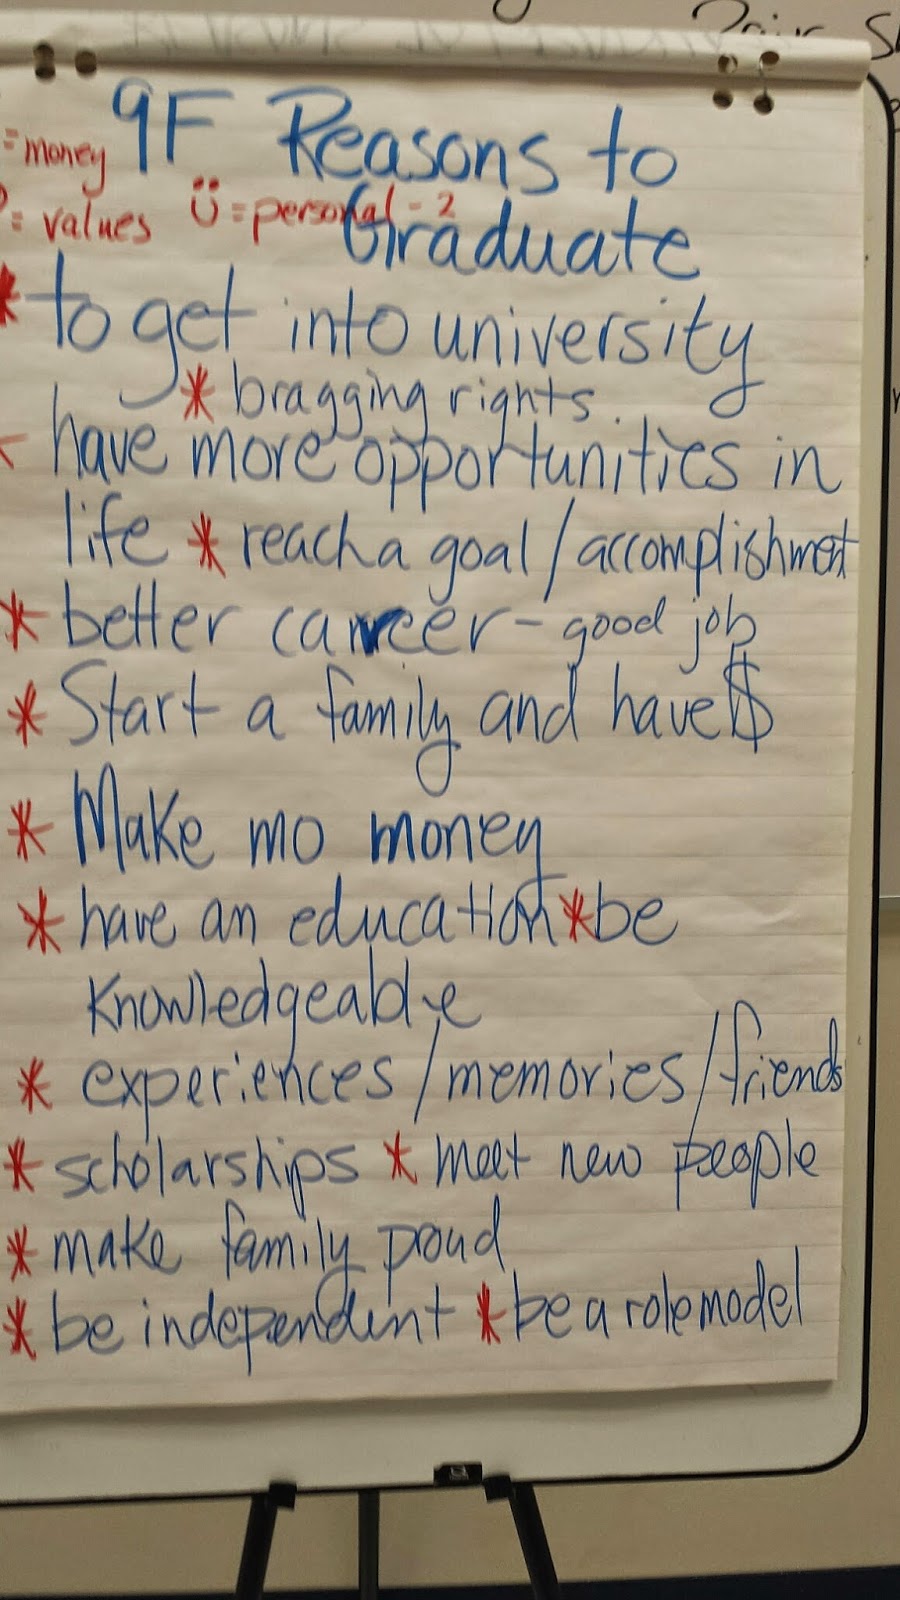 9F Reasons to
= money
Graduate
= values Ü = personal - 2
* to get into university
* bragging rights
* have more opportunities in
life * reach a goal / accomplishment
* better career - good job
* Start a family and have $
* Make mo money
* have an education * be
knowledgeable
* experiences / memories / friends
* scholarships * meet new people
* make family proud
* be independent * be a role model